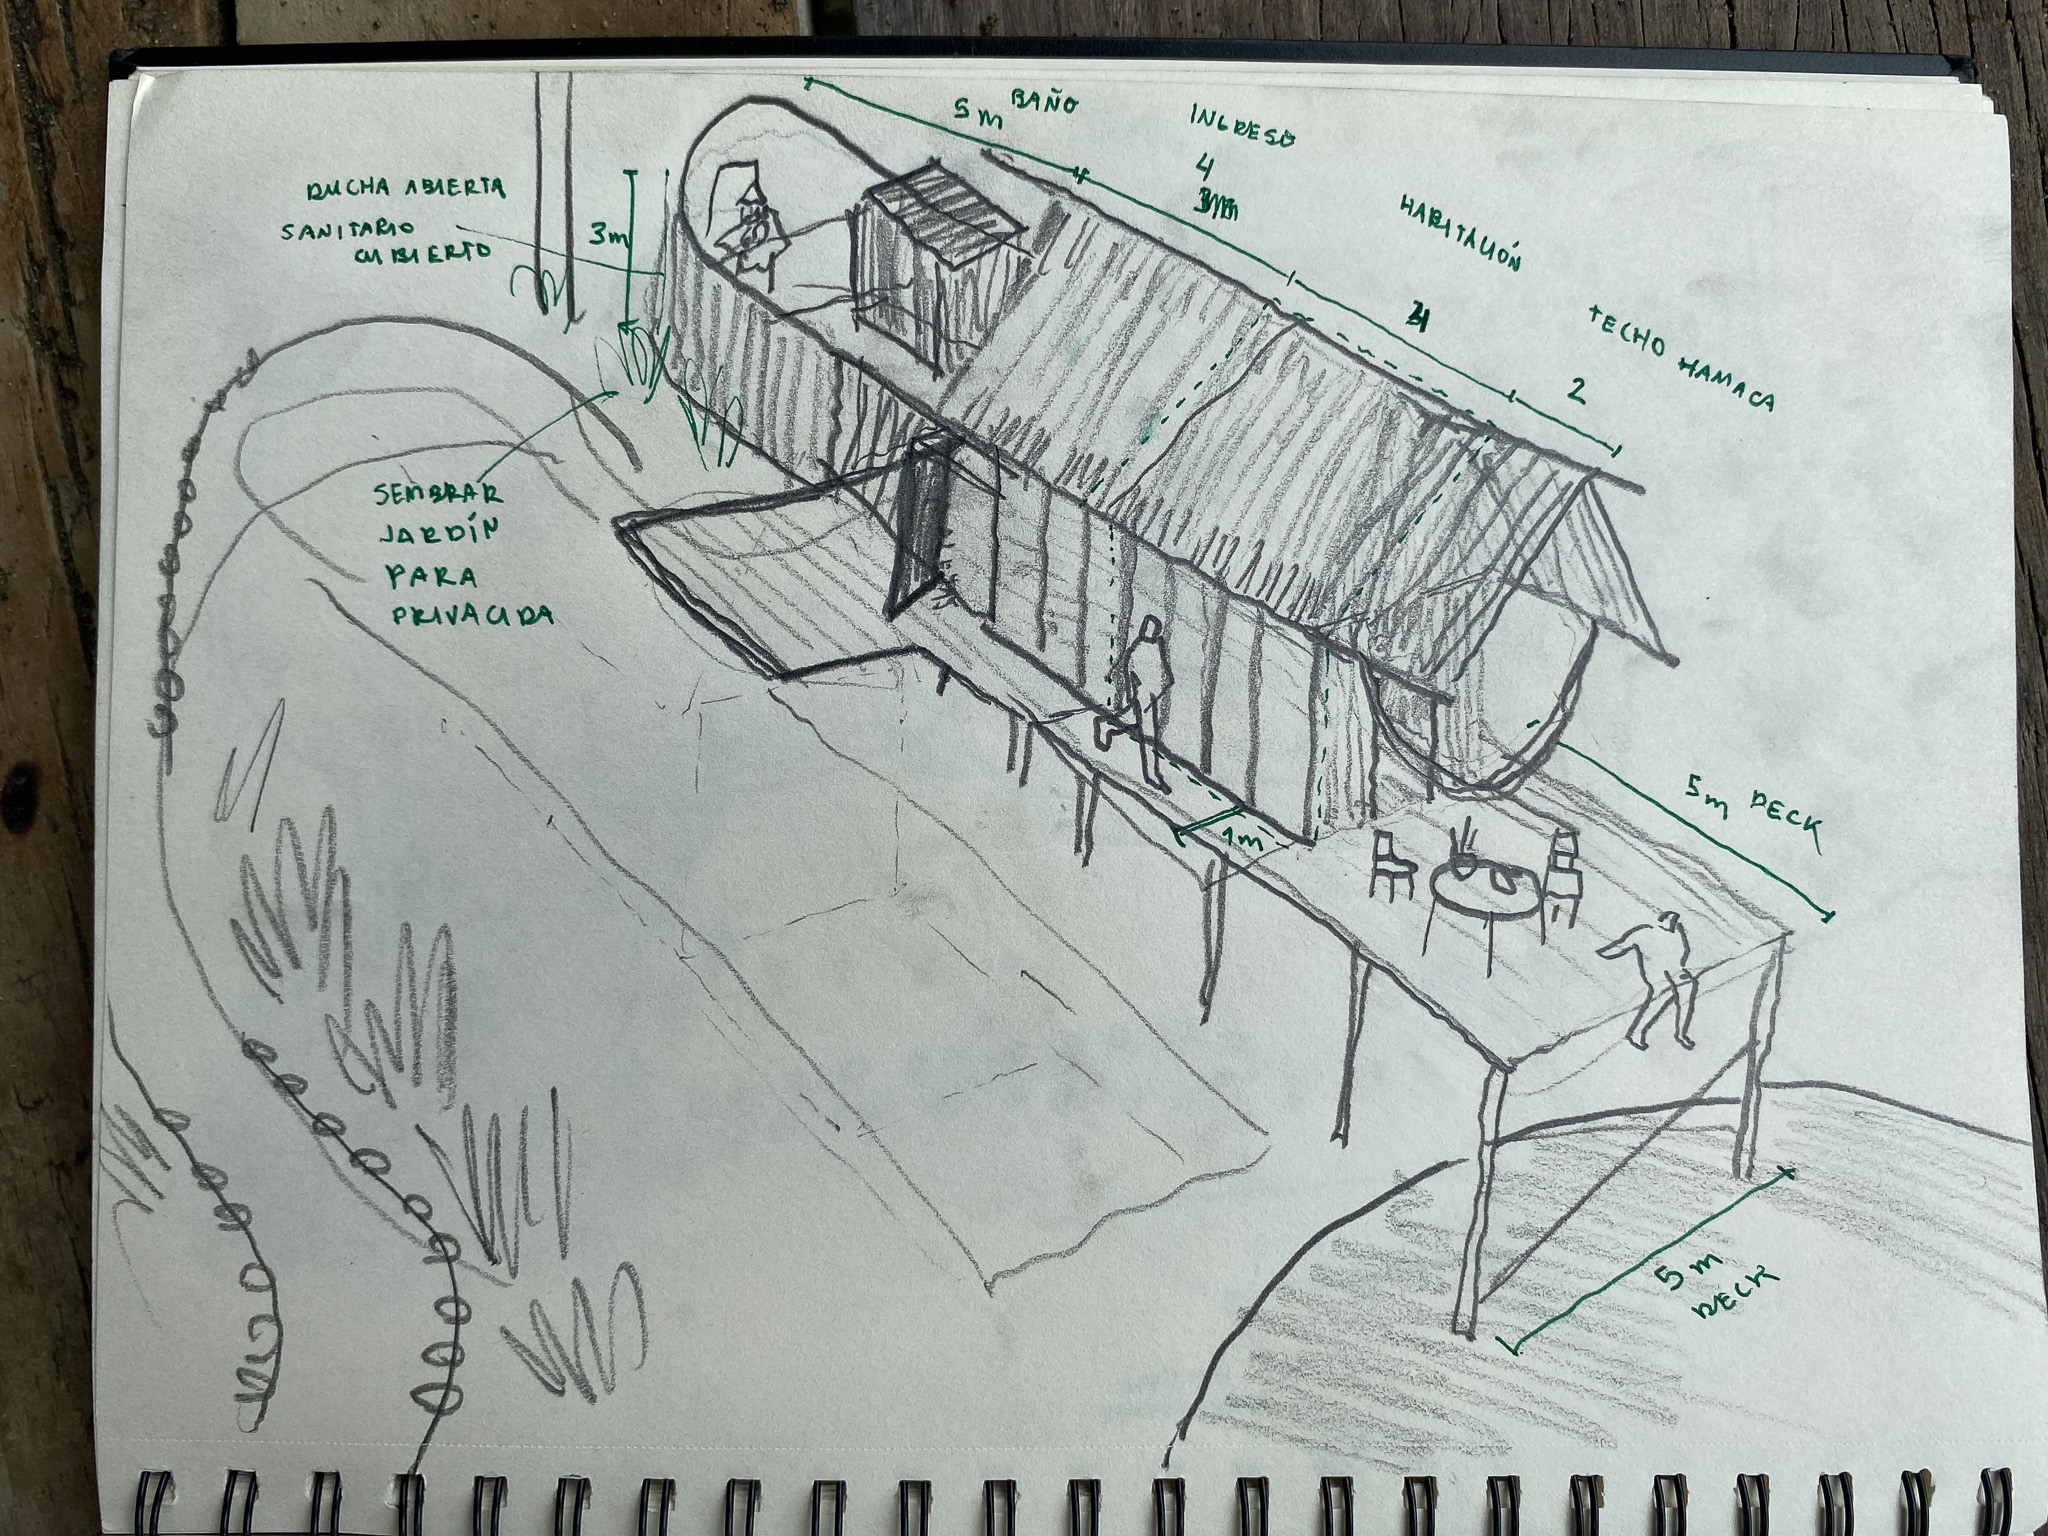 5m BAÑO
INGRESO
4
HABITACIÓN
4
TECHO HAMACA
2
DUCHA ABIERTA
SANITARIO
CUBIERTO
3m
SEMBRAR
JARDÍN
PARA
PRIVACIDA
1m
5m DECK
5m
DECK